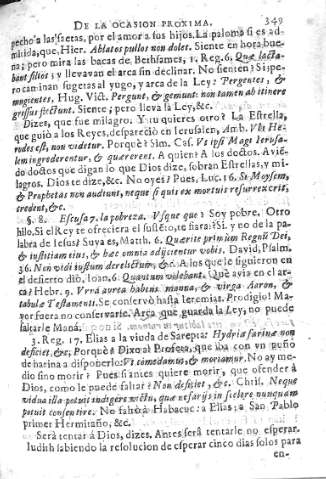 DE LA OCASION PROXIMA. 349
pecho à las saetas, por el amor à sus hijos. La paloma si es ad-
mitida, que, Hier. Ablatos pullos non dolet. Siente en hora bue-
na; pero mira las bacas de Bethsames, 1. Reg. 6. Quæ lacta-
bant filios; y llevavan el arca sin declinar. No sienten? Si; pe-
ro caminan sugetas al yugo, y arca de la Ley: Pergentes, &
mugentes, Hug. Vict. Pergunt, & gemunt: non tamen ab itinere
gressus flectunt. Siente; pero lleva la Ley, &c.
Dizes, que fue milagro. Y tu quieres otro? La Estrella,
que guiò a los Reyes, despareciò en Ierusalen, Amb. Vbi He-
rodes est, non videtur. Porquè? Sim. Cas. Vt ipsi Magi Ierusa-
lem ingrederentur, & quærerent. A quien? A los doctos. Avié-
do doctos que digan lo que Dios dize, sobran Estrellas, y mi-
lagros. Dios te dize, &c. No oyes? Pues, Luc. 16. Si Moysem,
& Prophetas non audiunt, neque si quis ex mortuis resurrexerit,
credent, &c.
§. 8. Escusa 7. la pobreza. Vsque que? Soy pobre. Otro
hilo. Si el Rey te ofreciera el susteto, te fiara? Si. y no de la pa-
labra de Iesus? Suya es, Matth. 6. Quærite primùm Regnũ Dei,
& iustitiam eius, & hæc omnia adijcientur vobis. David, Psalm.
36. Non vidi iustum derelictum, &c. A los que le siguieron en
el desierto diò, Ioan. 6. Quantum volebant. Què avia en el ar-
ca? Hebr. 9. Vrna aurea habens manna, & virga Aaron, &
tabulæ Testamenti. Se conservò hasta Ieremias. Prodigio! Ma-
yor fuera no conservarle. Arca que guarda la Ley, no puede
faltarle Manà.
3. Reg. 17. Elias a la viuda de Sarepta: Hydria farinæ non
deficiet, &c. Porquè? Dixo al Profeta, que iba con vn puño
de harina a disponerlo: Vt comedamus, & moriamur. No ay me-
dio sino morir? Pues si antes quiere morir, que ofender à
Dios, como le puede faltar? Non deficiet, &c. Chris. Neque
vidua illa petuit indigere victu, quæ nefarijs in scelere nunquam
petuit consentire. No faltò à Habacuc: a Elias; a San Pablo
primer Hermitaño, &c.
Serà tentar à Dios, dizes. Antes serà tentarle no esperar.
Iudith labiendo la resolucion de esperar cinco dias solos para
en-